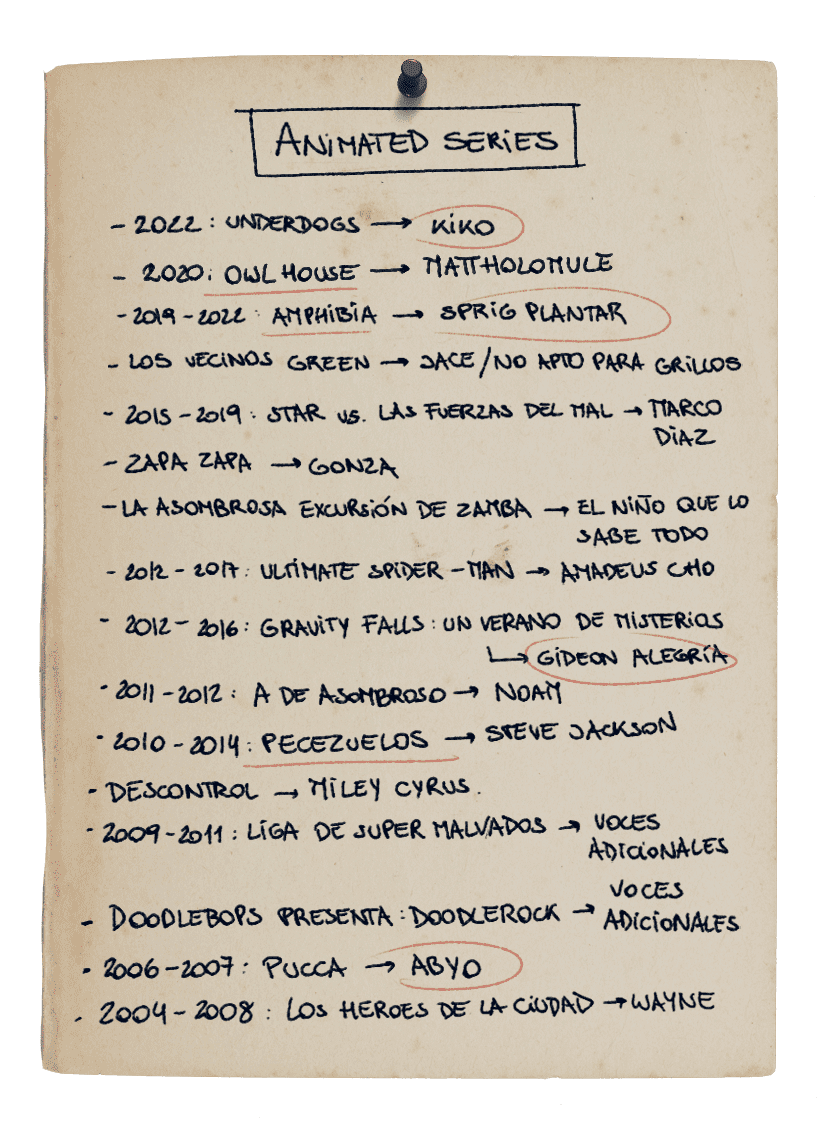 ANIMATED SERIES
- 2022 : UNDERDOGS → KIKO
- 2020: OWL HOUSE → MATTHOLOMULE
- 2019 - 2022 : AMPHIBIA → SPRIG PLANTAR
- LOS VECINOS GREEN → JACE / NO APTO PARA GRILLOS
- 2015 - 2019 : STAR VS. LAS FUERZAS DEL MAL → MARCO
DIAZ
- ZAPA ZAPA → GONZA
- LA ASOMBROSA EXCURSIÓN DE ZAMBA → EL NIÑO QUE LO
SABE TODO
- 2012 - 2017 : ULTIMATE SPIDER - MAN → AMADEUS CHO
- 2012 - 2016 : GRAVITY FALLS : UN VERANO DE MISTERIOS
↳ GIDEON ALEGRÍA
- 2011 - 2012 : A DE ASOMBROSO → NOAM
- 2010 - 2014 : PECEZUELOS → STEVE JACKSON
- DESCONTROL → MILEY CYRUS.
- 2009 - 2011 : LIGA DE SUPER MALVADOS → VOCES
ADICIONALES
- DOODLEBOPS PRESENTA : DOODLEROCK → VOCES
ADICIONALES
- 2006 - 2007 : PUCCA → ABYO
- 2004 - 2008 : LOS HEROES DE LA CIUDAD → WAYNE